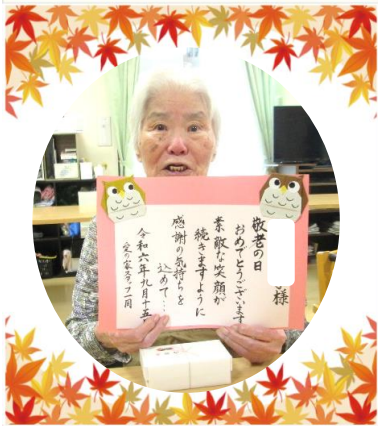 敬老の日
様
おめでとうございます
素敵な笑顔が
続きますように
感謝の気持ちを
込めて…
令和六年九月十五